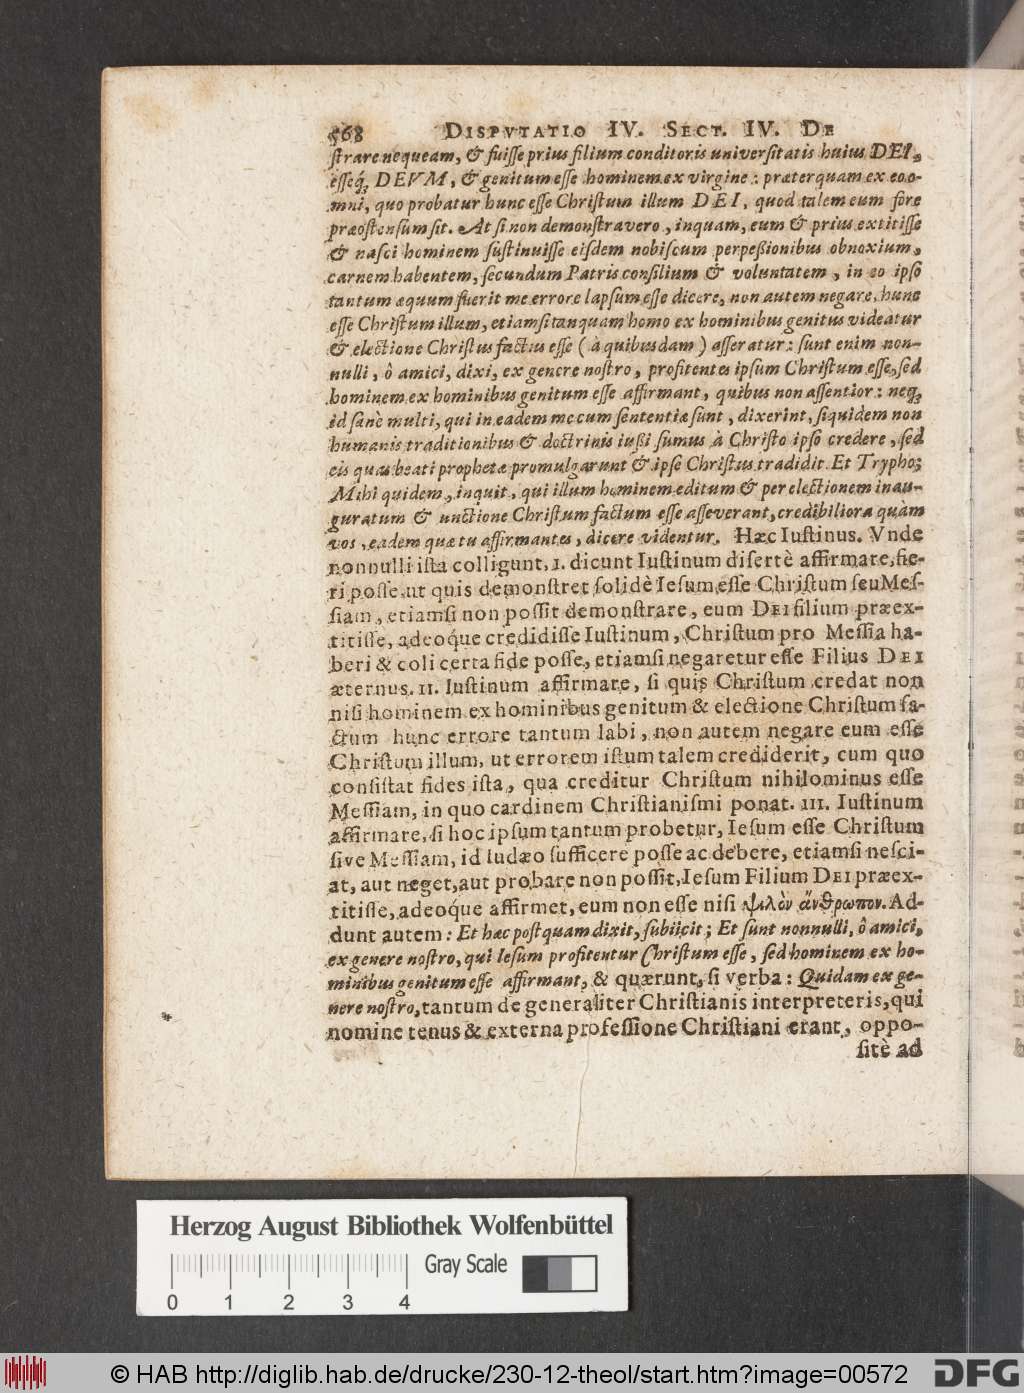 568 DISPVTATIO IV. SECT. IV. DE
ſtrare nequeam, & fuiſſe prius filium conditoris univerſitatis huius DEI,
eſſeq́; DEVM, & genitum eſſe hominem ex virgine: præterquam ex eo o-
mni, quo probatur hunc eſſe Chriſtum illum DEI, quod talem eum fore
præoſtenſum ſit. At ſi non demonſtravero, inquam, eum & prius extitiſſe
& naſci hominem ſuſtinuiſſe eiſdem nobiſcum perpeßionibus obnoxium,
carnem habentem, ſecundum Patris conſilium & voluntatem, in eo ipſo
tantum æquum fuerit me errore lapſum eſſe dicere, non autem negare, hunc
eſſe Chriſtum illum, etiamſi tanquam homo ex hominibus genitus videatur
& electione Chriſtus factus eſſe (à quibusdam) aſſeratur: ſunt enim non-
nulli, ô amici, dixi, ex genere noſtro, profitentes ipſum Chriſtum eſſe, ſed
hominem ex hominibus genitum eſſe affirmant, quibus non aſſentior: neq;
id ſanè multi, qui in eadem mecum ſententiæ ſunt, dixerint, ſiquidem non
humanis traditionibus & doctrinis iußi ſumus à Chriſto ipſo credere, ſed
eis quæ beati prophetæ promulgarunt & ipſe Chriſtus tradidit. Et Trypho;
Mihi quidem, inquit, qui illum hominem editum & per electionem inau-
guratum & unctione Chriſtum factum eſſe aſſeverant, credibiliora quàm
vos, eadem quæ tu affirmantes, dicere videntur. Hæc Iuſtinus. Vnde
nonnulli iſta colligunt, 1. dicunt Iuſtinum diſertè affirmare, fie-
ri poſſe, ut quis demonſtret ſolidè Ieſum eſſe Chriſtum ſeu Meſ-
ſiam, etiamſi non poſſit demonſtrare, eum DEI filium præex-
titiſſe, adeoq́ue credidiſſe Iuſtinum, Chriſtum pro Meſſia ha-
beri & coli certa fide poſſe, etiamſi negaretur eſſe Filius DEI
æternus. 11. Iuſtinum affirmare, ſi quis Chriſtum credat non
niſi hominem ex hominibus genitum & electione Chriſtum fa-
ctum hunc errore tantum labi, non autem negare eum eſſe
Chriſtum illum, ut errorem iſtum talem crediderit, cum quo
conſiſtat fides iſta, qua creditur Chriſtum nihilominus eſſe
Meſſiam, in quo cardinem Chriſtianiſmi ponat. 111. Iuſtinum
affirmare, ſi hoc ipſum tantum probetur, Ieſum eſſe Chriſtum
ſive Meſſiam, id Iudæo ſufficere poſſe ac debere, etiamſi neſci-
at, aut neget, aut probare non poſſit, Ieſum Filium DEI præex-
titiſſe, adeoq́ue affirmet, eum non eſſe niſi ψιλὸν ἄνθρωπον. Ad-
dunt autem: Et hæc poſtquam dixit, ſubiicit; Et ſunt nonnulli, ô amici,
ex genere noſtro, qui Ieſum profitentur Chriſtum eſſe, ſed hominem ex ho-
minibus genitum eſſe affirmant, & quærunt, ſi verba: Quidam ex ge-
nere noſtro, tantum de generaliter Chriſtianis interpreteris, qui
nomine tenus & externa profeſſione Chriſtiani erant, oppo-
ſitè ad
Herzog August Bibliothek Wolfenbüttel
Gray Scale
0 1 2 3 4
© HAB http://diglib.hab.de/drucke/230-12-theol/start.htm?image=00572 DFG